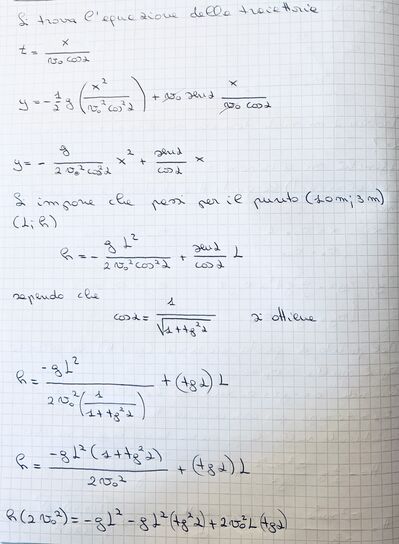 Si trova l'equazione della traiettoria
t = x / (v₀ cosα)
y = -1/2 g (x² / (v₀² cos² α)) + v₀ senα x / (v₀ cosα)
y = - g / (2 v₀² cos² α) x² + senα / cosα x
Si impone che passi per il punto (10m; 3m)
(L; h)
h = - g L² / (2 v₀² cos² α) + senα / cosα L
sapendo che
cosα = 1 / √(1+tg² α) si ottiene
h = -g L² / (2 v₀² (1 / (1+tg² α))) + (tgα) L
h = -g L² (1+tg² α) / (2 v₀²) + (tgα) L
h (2 v₀²) = -g L² - g L² (tg² α) + 2 v₀² L (tgα)